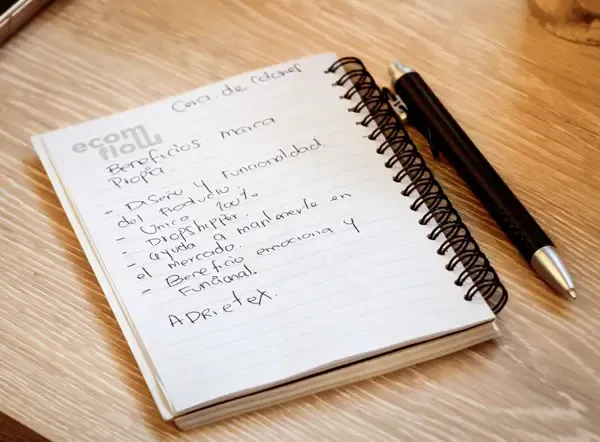 Cera de
ecom
flow
Beneficios. marca
Propia.
- Diseño y Funcionalidad.
del Producto.
- Unico 100%
- Dropshipper.
- ayuda a mantenerte en
el mercado.
- Beneficio emociona y
Funcional.
ADRIETEX.